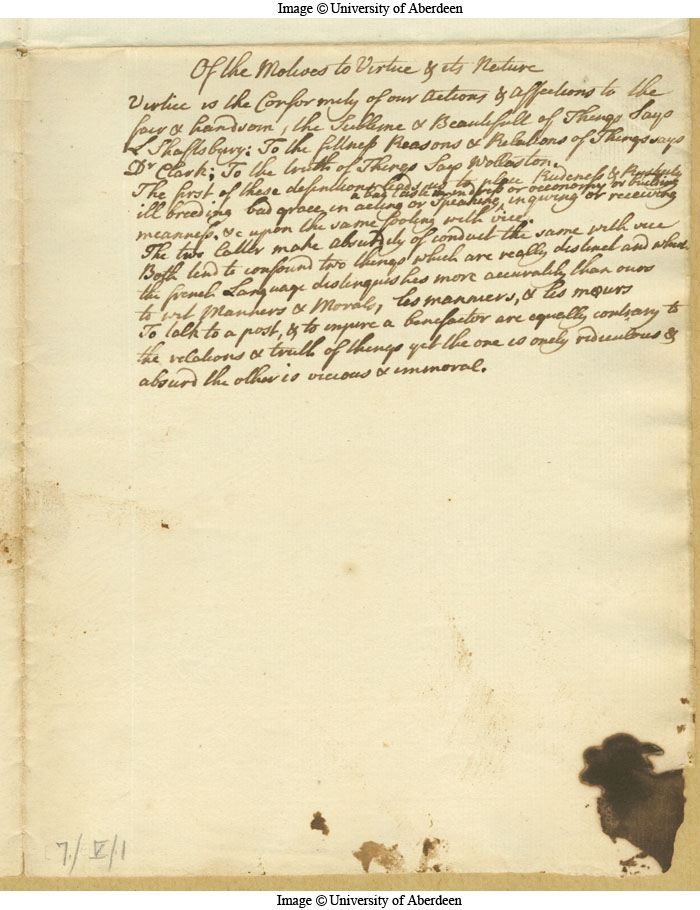 Image © University of Aberdeen
Of the Motives to Virtue & its Nature
Virtue is the Conformity of our Actions & Affections to the
fair & handsom, the Sublime & Beautifull of Things Says
L Shaftsbury: To the fittness Reasons & Relations of Things says
Dr Clark; To the truth of Things Says Wollaston.
The first of these definitions leads us to place Rudeness & Rusticity
a bad taste in dress or oeconomy or building
ill breeding bad grace in acting or Speaking, inquiring or receiving
meanness. &c upon the same footing with vice.
The two latter make absurdity of conduct the same with vice
Both tend to confound two things which are really distinct and which
the french Language distinguishes more accurately than ours
to wit Manners & Morals, les manniers, & les mœurs
To talk to a post, & to injure a benefactor are equally contrary to
the relations & truth of things yet the one is onely ridiculous &
absurd the other is vicious & immoral.
7/V/1
Image © University of Aberdeen